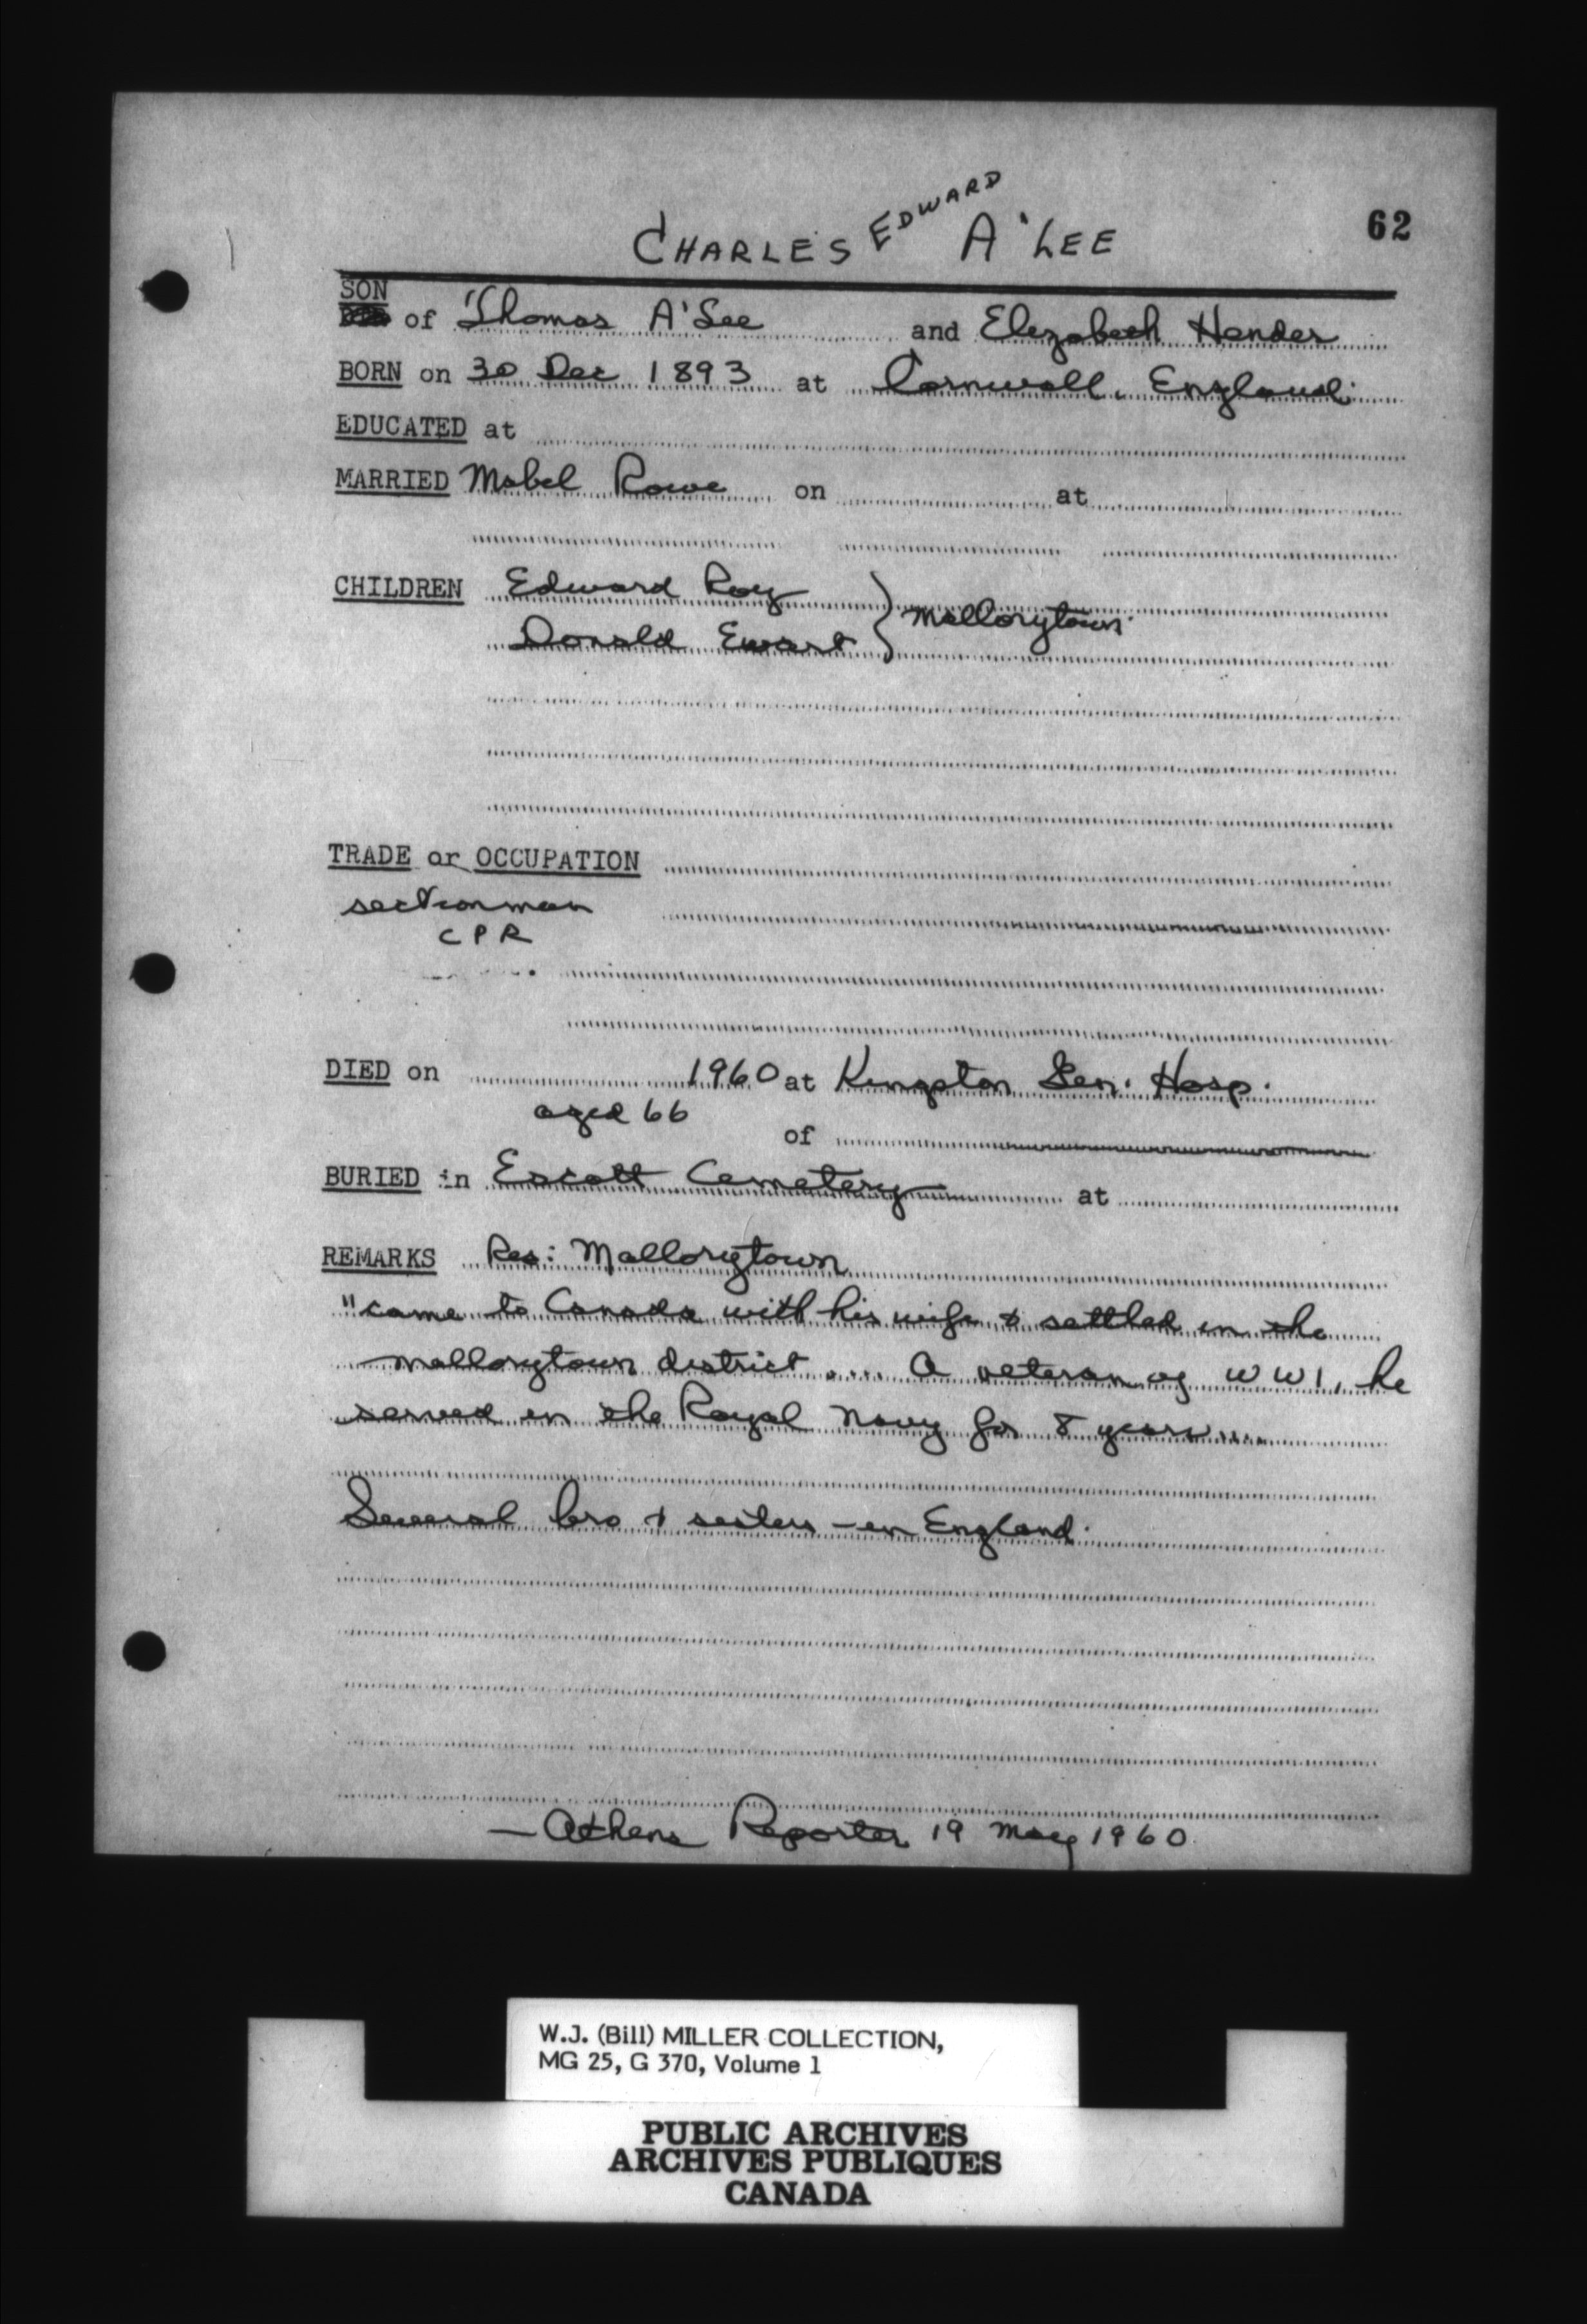 62
CHARLES EDWARD A'LEE
SON of Thomas A'Lee and Elizabeth Hender
BORN on 30 Dec 1893 at Cornwall, England
EDUCATED at
MARRIED Mabel Rowe on at
CHILDREN Edward Roy
Donald Ewart } Mallorytown
TRADE or OCCUPATION
sectionman
CPR
DIED on 1960 at Kingston Gen. Hosp.
aged 66
of
BURIED in Escott Cemetery at
REMARKS Res: Mallorytown
"came to Canada with his wife & settled in the
Mallorytown district .... A veteran of WW1, he
served in the Royal Navy for 8 years....
Several bro & sisters - in England.
— Athens Reporter 19 May 1960
W.J. (Bill) MILLER COLLECTION,
MG 25, G 370, Volume 1
PUBLIC ARCHIVES
ARCHIVES PUBLIQUES
CANADA